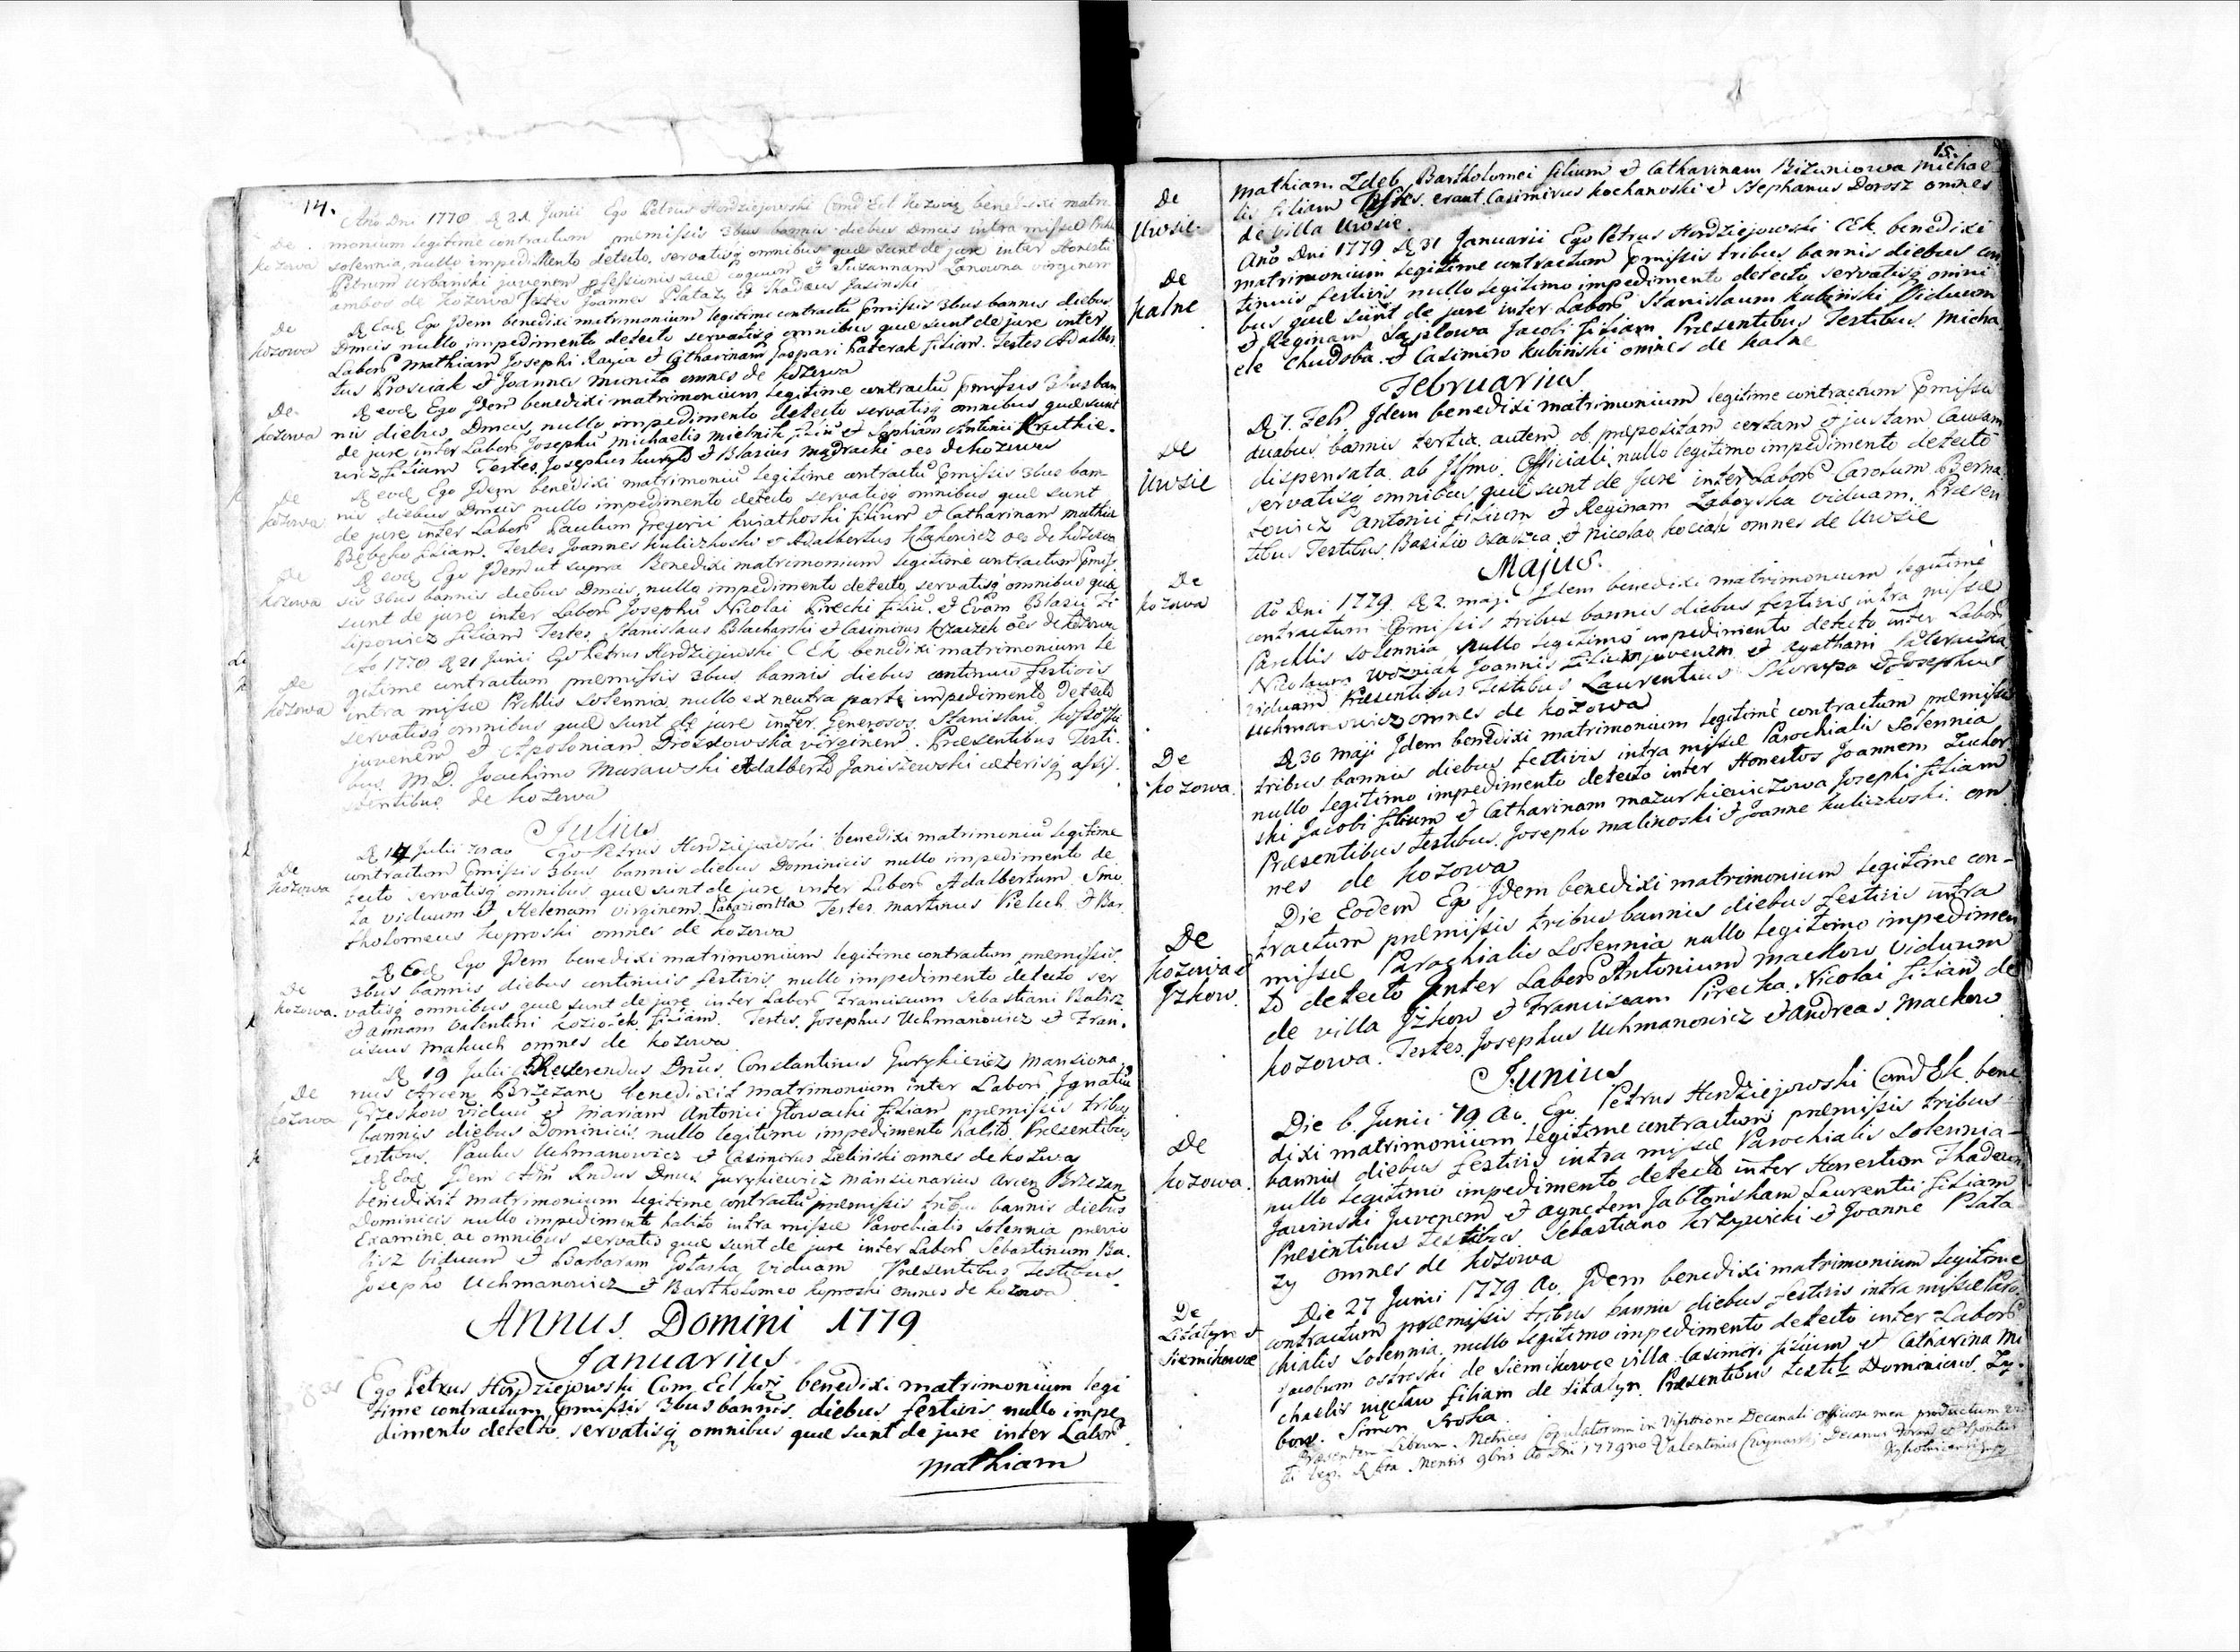 14.
Año Dni 1778 D 21 Junii Ego Petrus Herdziejowski Comd Ecl Kozovię benedixi matri
De Kozowa
monium legitime contractum premissis 3bus bannis diebus Dnicis intra missae
solennia, nullo impedimento detecto, servatisq omnibus quae sunt de jure inter Honesti
Petrum Urbański juvenem Pfessionis suae coquum et Suzannam Zanowna virginem
ambos de Kozowa Testes Joannes Platazy et Thadaeus Jasinski
De Kozowa
D Eod Ego Jdem benedixi matrimonium legitime contractū pmissis 3bus bannis diebus
Dnicis nullo impedimento detecto servatisq omnibus quae sunt de jure inter
Labor Mathiam Josephi Kazia et Catharinam Gaspari Katerak filiam. Testes Adalber
tus Prosciak et Joannes omnes de Kozowa
De Kozowa
D eod Ego Jdem benedixi matrimonium legitime contractū pmissis 3bus ban
nis diebus Dnicis, nullo impedimento detecto servatisq omnibus quae sunt
de jure inter Labor Josephū Michaelis Mielnik filiū et Sophiam Antonii Kruthie-
wicz filiam Testes Josephus Kurylo et Blasius Mądracki oes de Kozowa
De Kozowa
D eod Ego Jdem benedixi matrimoniū legitime contractū pmissis 3bus ban
nis diebus Dnicis nullo impedimento detecto servatisq omnibus quae sunt
de jure inter Labor Paulum Gregorii Kwiatkoski filium et Catharinam Mathiae
filiam. Testes Joannes Kuliczkoski et Adalbertus oes de Kozowa
De Kozowa
D eod Ego Jdem ut supra Benedixi matrimonium legitime contractum pmis
sis 3bus bannis diebus Dnicis, nullo impedimento detecto, servatisq omnibus quae
sunt de jure inter Labor Josephū Nicolai Pirecki filiū et Evam Blasii Fi
lipowicz filiam Testes Stanislaus Blacharski et Casimirus Krzaizek oes de Kozowa
De Kozowa
Ao 1778 D 21 Junii Ego Petrus Herdziejowski CEK benedixi matrimonium le
gitime contractum premissis 3bus bannis diebus continuis festivis
intra missae Prchlis solennia, nullo ex neutra parte impedimento detecto
servatisq omnibus quae sunt de jure inter Generosos Stanislaū
juvenem et Apoloniam Drozdowska virginem. Praesentibus Testi
bus M.D. Joachimo Murawski Adalberto Janiszewski caeterisq assis
tentibus de Kozowa
Julius
De Kozowa
D 14 Julii Ego Petrus Herdziejowski benedixi matrimoniū legitime
contractum pmissis 3bus bannis diebus Dominicis nullo impedimento de
tecto servatisq omnibus quae sunt de jure inter Labor Adalbertum Smo
la viduum et Helenam virginem Testes Martinus Pielech et Bar
tholomeus Koproski omnes de Kozowa
De Kozowa.
D Eod Ego Jdem benedixi matrimonium legitime contractum premissis
3bus bannis diebus continuis festivis, nullo impedimento detecto ser
vatisq omnibus quae sunt de jure inter Labor Franciscum Sebastiani Balisz
et Annam Valentini Koziołek filiam. Testes Josephus Uchmanowicz et Fran-
ciscus Makuch omnes de Kozowa
De Kozowa
D 19 Julii Reverendus Dnus Constantinus Gurykiewicz Mansiona
rius Arcen Brzezan benedixit matrimonium inter Labor Ignatiū
Grzeskow viduū et Mariam Antonii Głowacki filiam premissis tribus
bannis diebus Dominicis, nullo legitimo impedimento habito. Praesentibus
Testibus Paulus Uchmanowicz et Casimirus Zieliński omnes de Kozowa
D Eod Jdem Adm Rndus Dnus Gurykiewicz mansionarius Arcen Brzezan
benedixit matrimonium legitime contractū premissis tribus bannis diebus
Dominicis nullo impedimento habito intra missae Parochialis solennia previo
Examine, ac omnibus servatis quae sunt de jure inter Labor Sebastinum Ba-
lisz viduum et Barbaram Golaska viduam Praesentibus Testibus
Josepho Uchmanowicz et Bartholomeo Koproski omnes de Kozowa
Annus Domini 1779
Januarius
Ego Petrus Herdziejowski Com Ecl Koz benedixi matrimonium legi
time contractum pmissis 3bus bannis diebus festivis nullo impe
dimento detecto servatisq omnibus quae sunt de jure inter Labor
Mathiam
15.
De Uwsie.
Mathiam Zdeb Bartholomei filium et Catharinam Bizuniowa Michae
lis filiam Testes erant Casimirus Kochanoski et Stephanus Dorosz omnes
de villa Uwsie.
De Kalne
Año Dni 1779 D 31 Januarii Ego Petrus Herdziejowski CEK benedixi
matrimonium legitime contractum pmissis tribus bannis diebus con
tinuis festivis nullo legitimo impedimento detecto servatisq omni
bus quae sunt de jure inter Labor Stanislaum Kubiński Viduum
et Reginam Jacobi filiam Praesentibus Testibus Micha
ele Chudoba et Casimiro Kubiński omnes de Kalne
Februarius
De Uwsie
D 7. Feb. Jdem benedixi matrimonium legitime contractum pmissis
duabus bannis tertia autem ob praepositam certam et justam causam
dispensata ab Jllmo Officiali, nullo legitimo impedimento detecto
servatisq omnibus quae sunt de jure inter Labor Carolum Berna
towicz Antonii filium et Reginam Zaborska viduam. Praesen
tibus Testibus Basilio et Nicolao Kociak omnes de Uwsie
Majus.
De Kozowa
Ao Dni 1779 D 2. maji Jdem benedixi matrimonium legitime
contractum pmissis tribus bannis diebus festivis intra missae
Parchlis solennia, nullo legitimo impedimento detecto inter Labor
Nicolaum Woźniak Joannis filium juvenem et Agatham
viduam Praesentibus Testibus Laurentius Skorupa et Josephus
Uchmanowicz omnes de Kozowa
De Kozowa.
D 30 Maji Jdem benedixi matrimonium legitime contractum premissis
tribus bannis diebus festivis intra missae Parochialis solennia
nullo legitimo impedimento detecto inter Honestos Joannem Zukow
ski Jacobi filium et Catharinam Mazurkiewiczowa Josephi filiam
Praesentibus testibus Josepho Malinoski et Joanne Kuliczkoski om
nes de Kozowa
De Kozowa et Jzkow.
Die Eodem Ego Jdem benedixi matrimonium legitime con-
tractum premissis tribus bannis diebus festivis intra
missae Parochialis solennia nullo legitimo impedimen
to detecto inter Labor Antonium Maćkow viduum
de villa Jżkow et Franciscam Pirecka Nicolai filiam de
Kozowa. Testes Josephus Uchmanowicz et Andreas Maćkow
Junius
De Kozowa.
Die 6. Junii 79 Ao. Ego Petrus Herdziejowski Comd Ek. bene
dixi matrimonium legitime contractum premissis tribus
bannis diebus festivis intra missae Parochialis solennia
nullo legitimo impedimento detecto inter Honestum Thadeum
Jawinski Juvenem et Agnetem Jabłońskam Laurentii filiam
Praesentibus testibus Sebastiano Krzywicki et Joanne Plata
zy omnes de Kozowa
De Litatyn et Siemikowce
Die 27 Junii 1779 Ao. Jdem benedixi matrimonium legitime
contractum premissis tribus bannis diebus festivis intra missae Paro
chialis solennia, nullo legitimo impedimento detecto inter Labor
Jacobum Ostroski de Siemikowce villa Casimiri filium et Catharina Mi
chaelis filiam de Litatyn. Praesentibus testib Dominicus
Simon Sroka
Praesentem Librum Metrices Copulatorum in Visittione Decanali officiose mea productum
D 6ta Mensis 9bris Ao Dni 1779no Valentinus Decanus